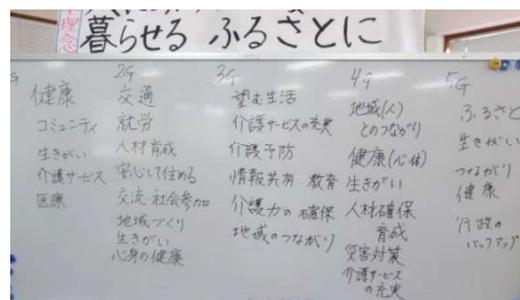 理念
暮らせる ふるさとに
G
健康
コミュニティ
生きがい
介護サービス
医療
2G
交通
就労
人材育成
安心して住める
交流・社会参加
地域づくり
生きがい
心身の健康
3G
望む生活
介護サービスの充実
介護予防
情報共有 教育
介護力の確保
地域のつながり
4G
地域(人)
とのつながり
健康(心体)
生きがい
人材確保
育成
災害対策
介護サービス
の充実
5G
ふるさと
生きがい
つながり
健康
行政の
バックアップ